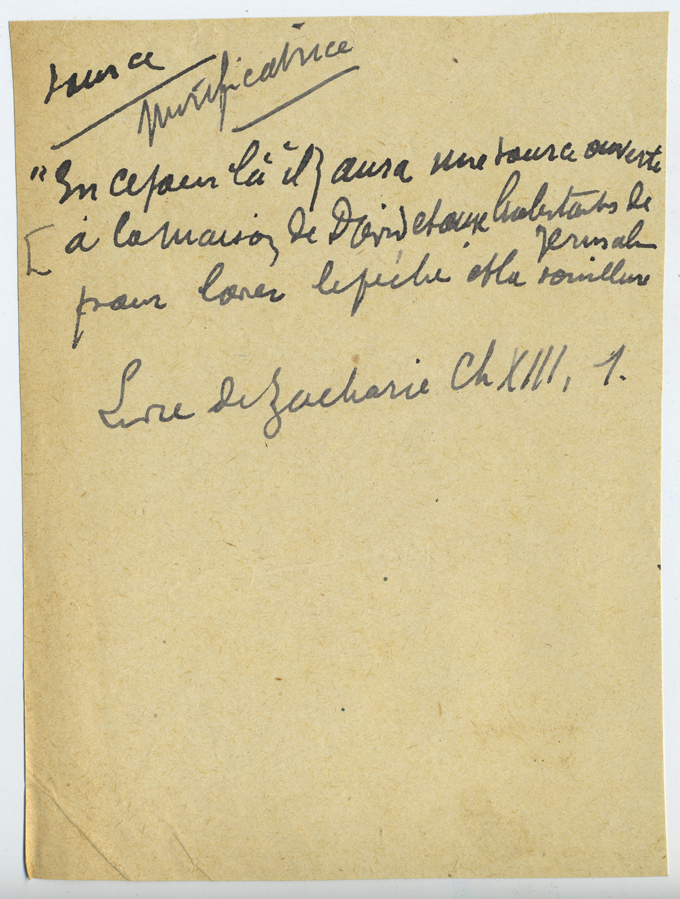 source
purificatrice
"En ce jour là il y aura une source ouverte
[ à la maison de David et aux habitants de
Jerusalem
pour laver le péché et la souillure
Livre de Zacharie Ch XIII, 1.